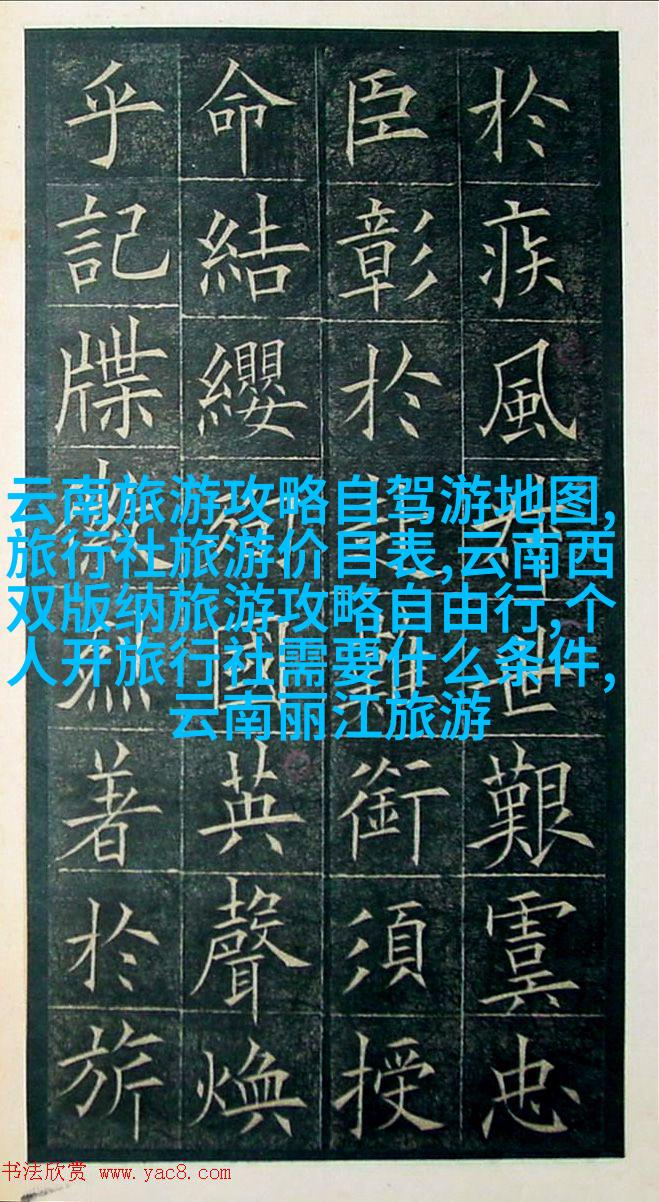 於疾風世艱虞忠
臣彰於難銜須授
命結纓國英聲煥
乎記牒烈著於旂
云南旅游攻略自驾游地图,
旅行社旅游价目表,云南西
双版纳旅游攻略自由行,个
人开旅行社需要什么条件,
云南丽江旅游
书法欣赏 www.yac8.com